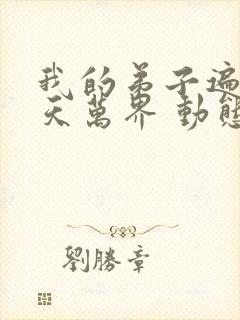 我的弟子遍
天萬界 動態
劉勝章